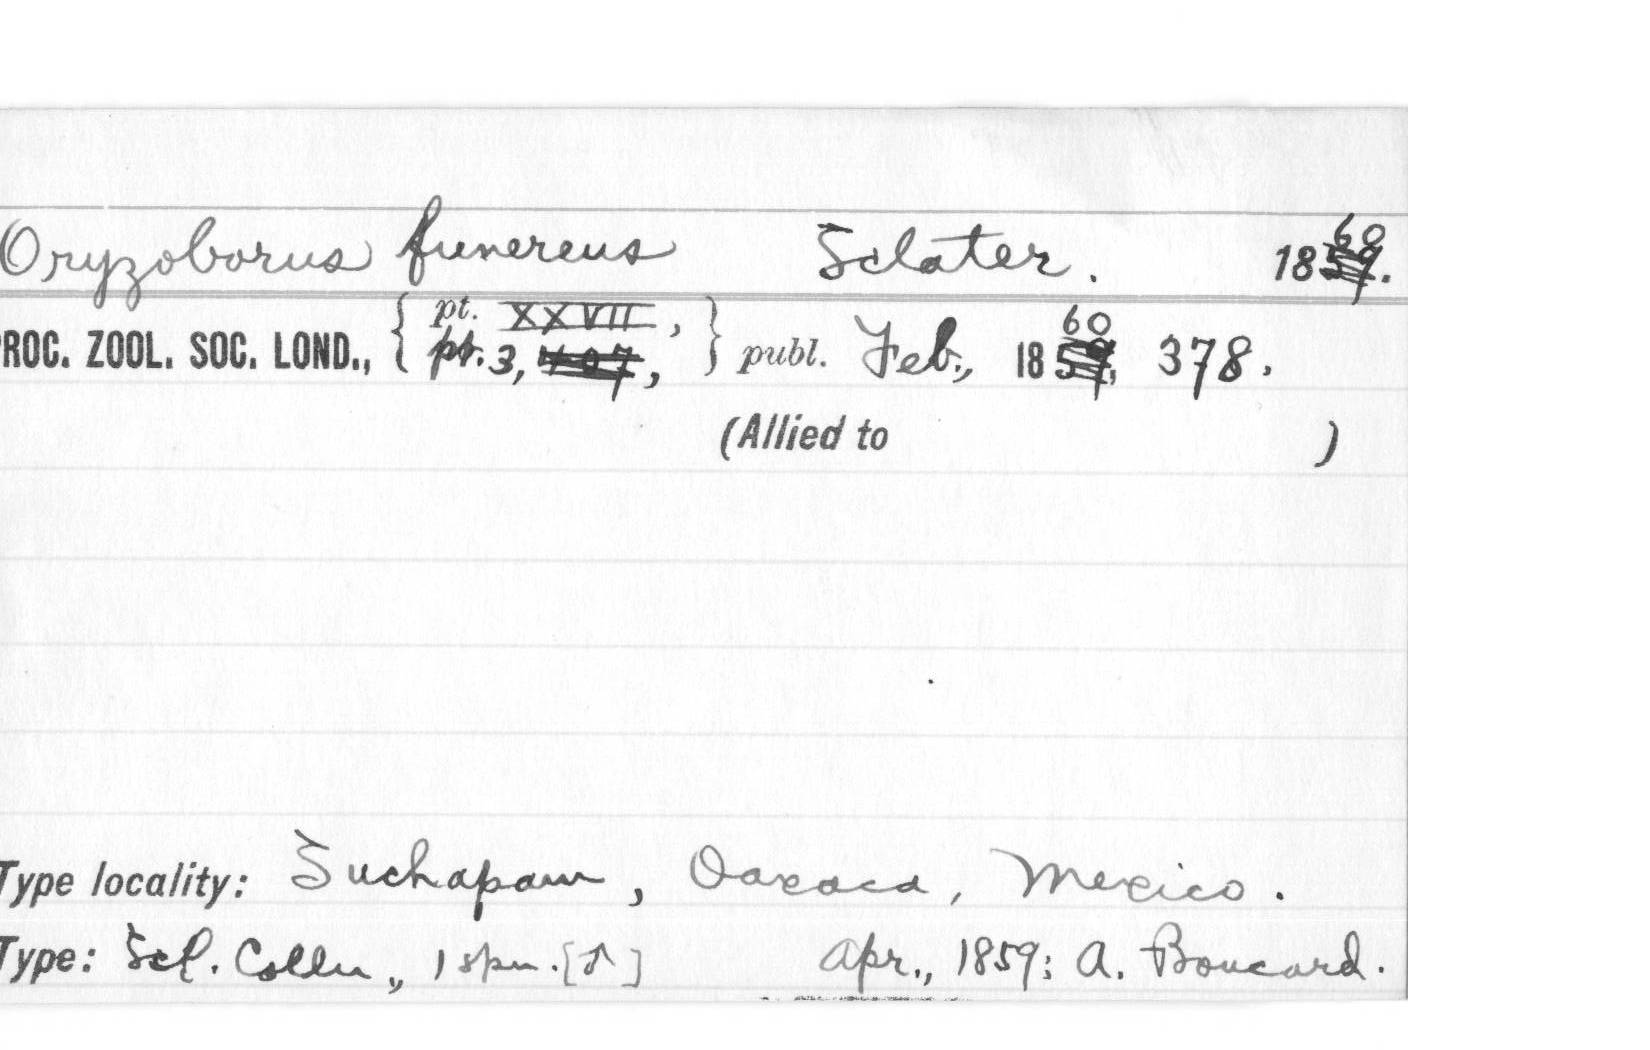 Oryzoborus funereus Sclater. 1860.
PROC. ZOOL. SOC. LOND., { pt. XXVII, pt. 3, } publ. Feb., 1860 378.
(Allied to )
Type locality: Suchapam, Oaxaca, Mexico.
Type: Scl. Colln., 1 spm. [♂] Apr., 1859: A. Boucard.